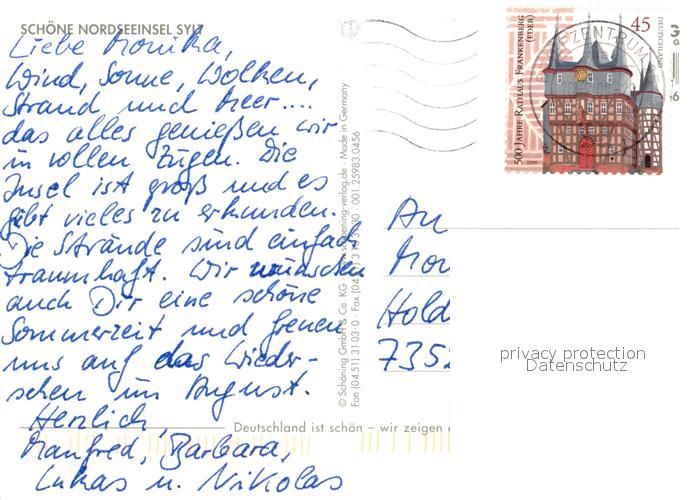 SCHÖNE NORDSEEINSEL SYLT
Liebe Monika,
Wind, Sonne, Wolken,
Strand und Meer....
das alles genießen wir
in vollen Zügen. Die
Insel ist groß und es
gibt vieles zu erkunden.
Die Strände sind einfach
traumhaft. Wir wünschen
auch Dir eine schöne
Sommerzeit und freuen
uns auf das Wieder-
sehen im August.
Herzlich,
Manfred, Barbara,
Lukas u. Nikolas
Deutschland ist schön – wir zeigen
© Schöning GmbH & Co. KG
Fax (0451) 31 03-0
verlag.de - Made in Germany
001.25983.0456
500 JAHRE RATHAUS FRANKENBERG
(EDER)
45
DEUTSCHLAND
2009
ZENTRUM
An
Mon
Hold
735
privacy protection
Datenschutz